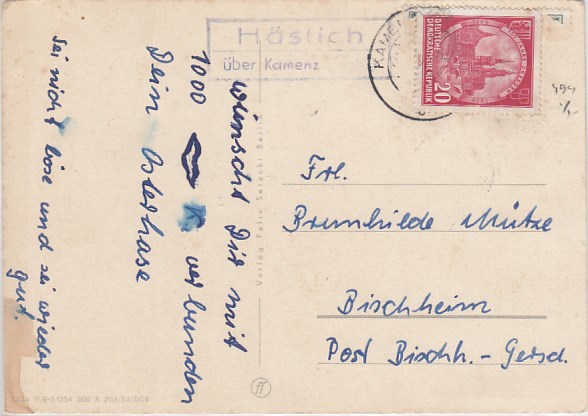 Häslich
über Kamenz
KAMENZ
DEUTSCHE
DEMOKRATISCHE REPUBLIK
20
494
wünscht Dir mit
1000 K. verbunden
Dein Osterhase
sei nicht böse und sei wieder
gut.
Verlag Felix Setecki Berlin
Frl.
Brunhilde Mütze
Bischheim
Post Bischh.-Gersd.